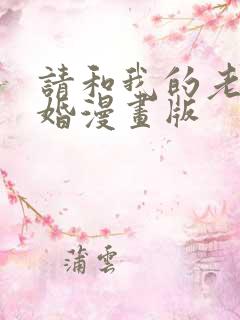 請和我的老
婚漫畫版
蒲雲